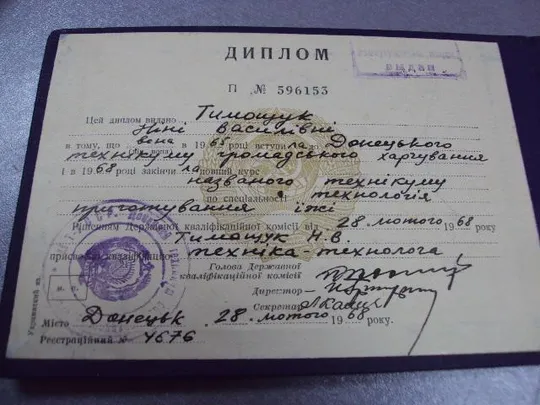 ДИПЛОМ
выдан
П № 596153
Цей диплом видано Тимощук
Ніні Василівні
в тому, що вона в 1965 вступила до Донецького
технікуму громадського харчування
і в 1968 закінчила повний курс
названого технікуму
по спеціальності технологія
приготування їжі
Рішенням Державної кваліфікаційної комісії від 28 лютого 1968 року
Тимощук Н.В.
присвоєно кваліфікацію техніка-технолога
Голова Державної
кваліфікаційної комісії
Директор
Секретар
М. П.
Місто Донецьк 28 лютого 1968 року.
Реєстраційний № 4676